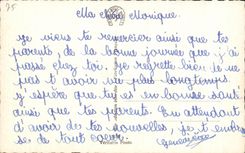 75
Ma chère Monique.
Je viens te remercier ainsi que tes
parents de la bonne journée que j'ai
passée chez toi. Je regrette bien je ne
puis t'avoir vu plus longtemps.
J'espère que tu es en bonne santé
ainsi que tes parents. En attendant
d'avoir de tes nouvelles, je t'embrasse
de tout cœur.
Geneviève